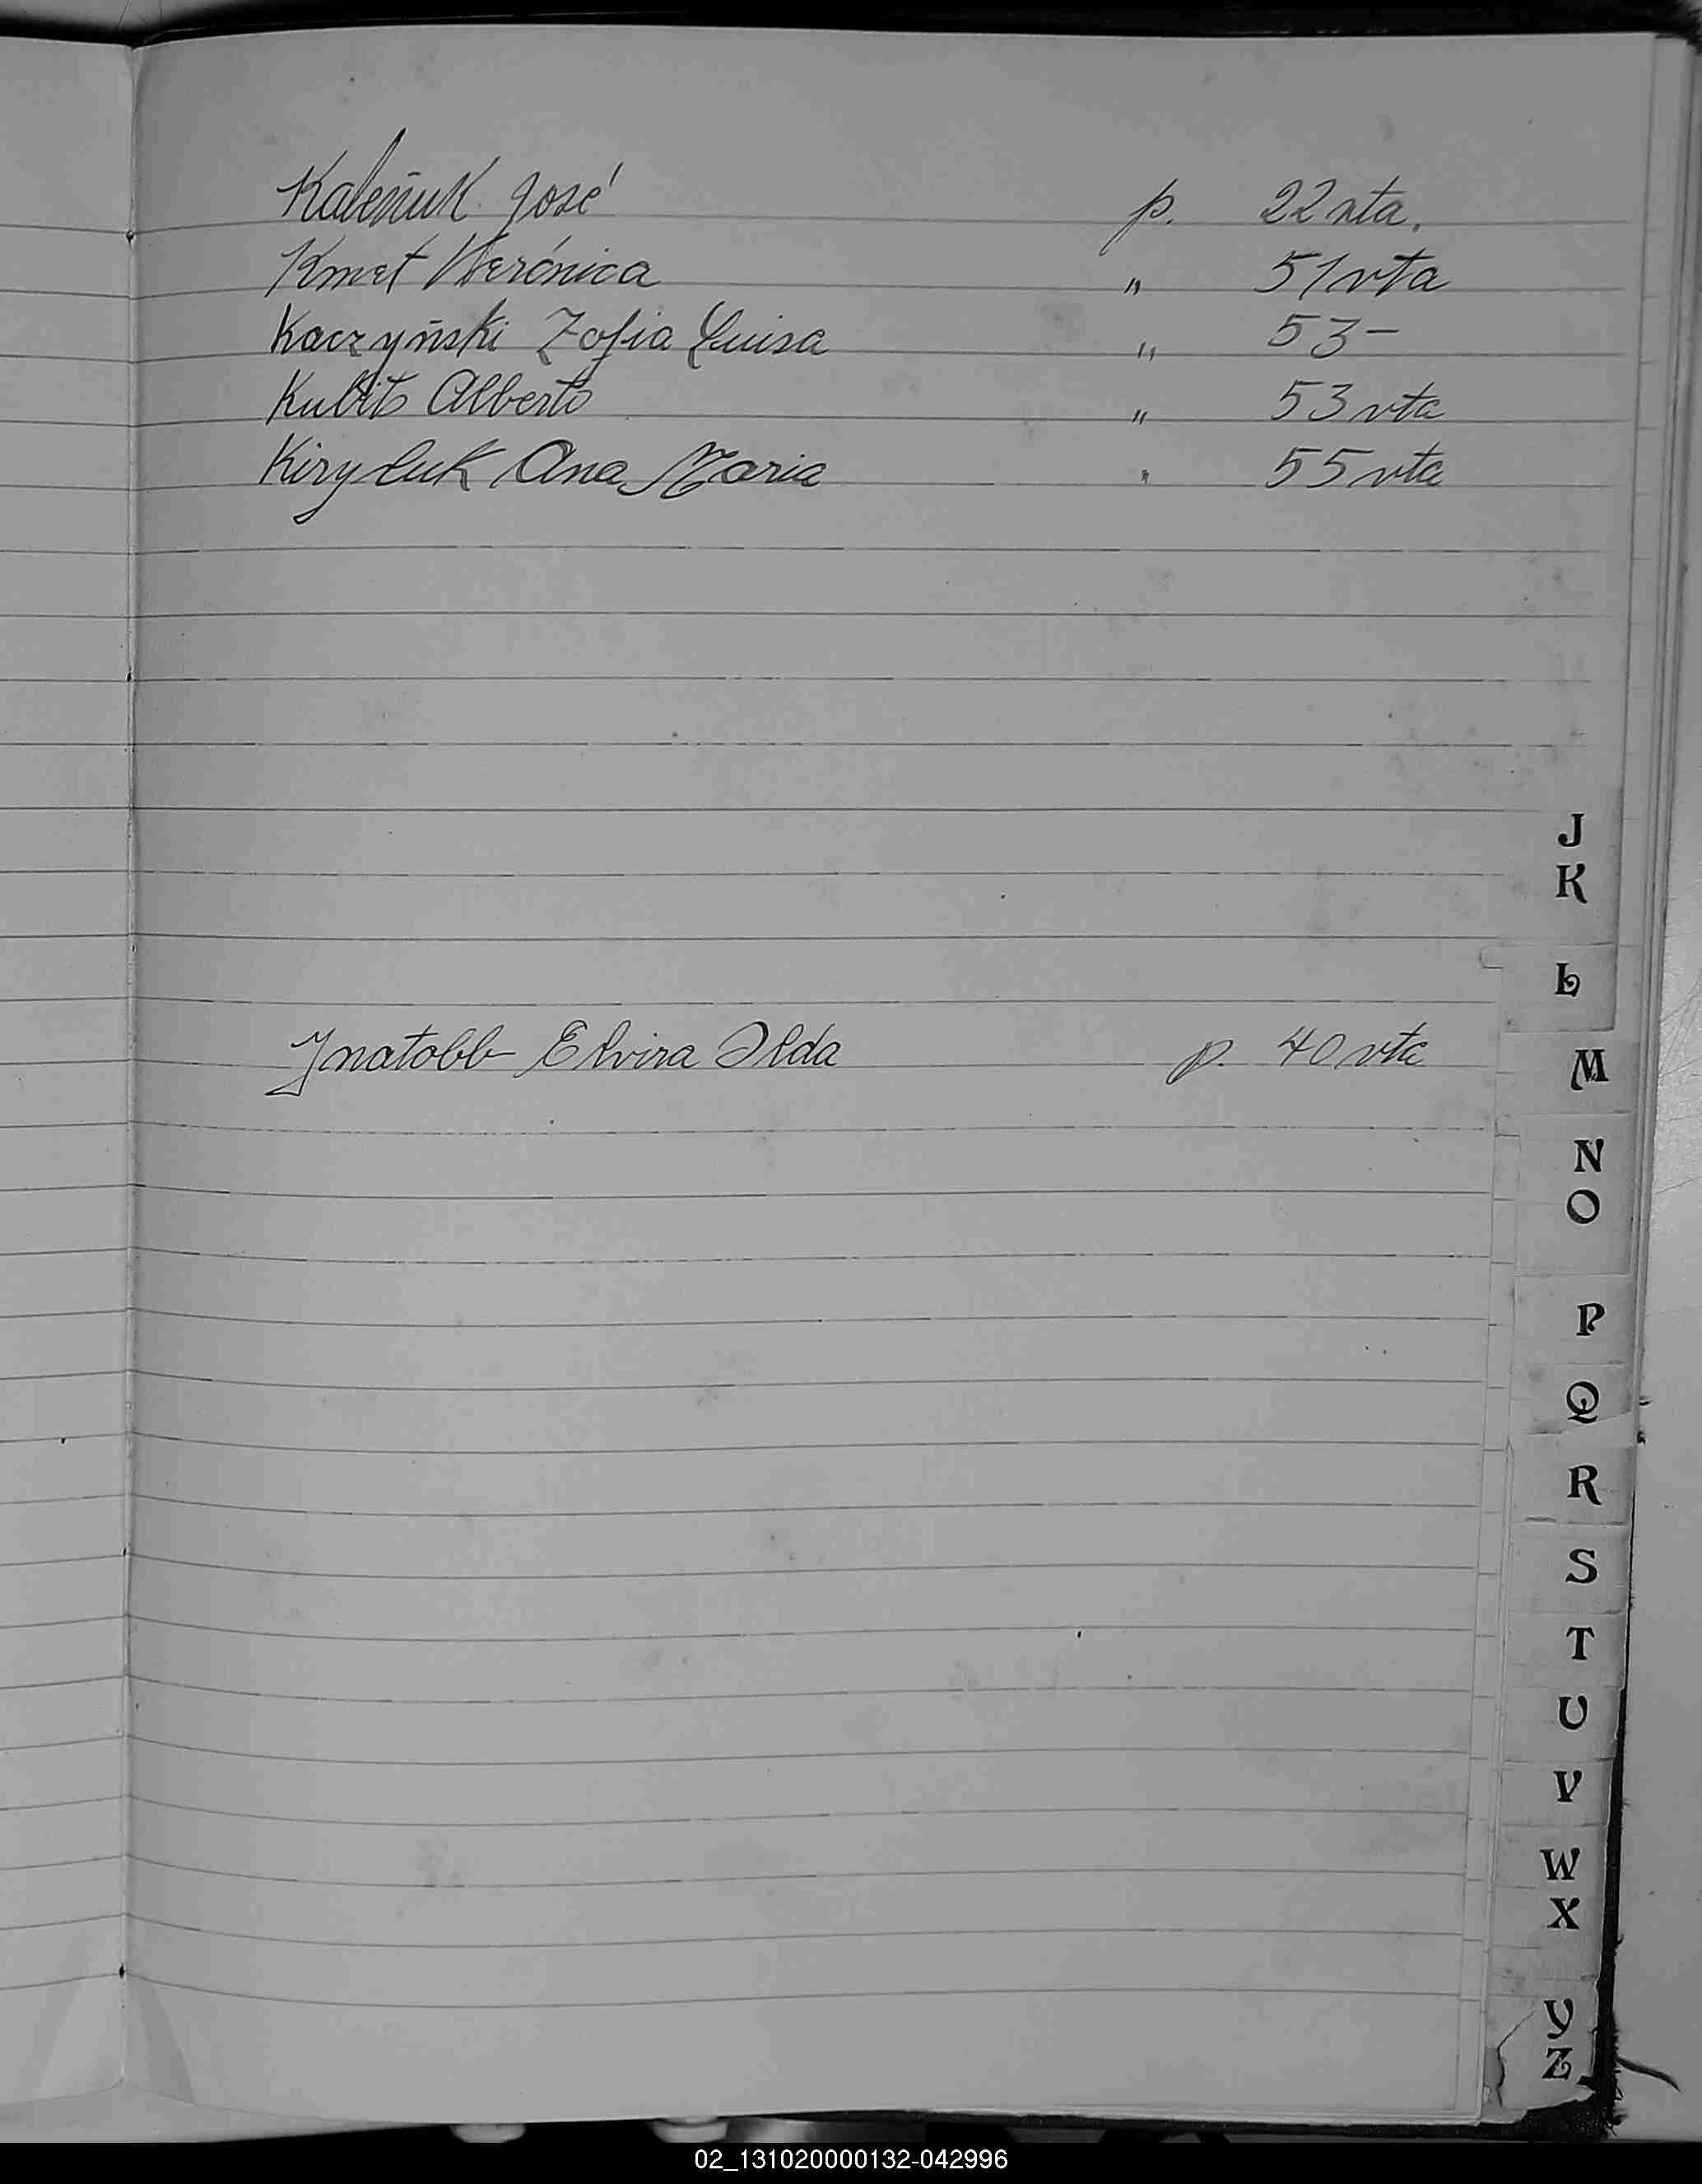 Kaleñuk José p. 22 vta.
Kmet Werónica " 51 vta
Kaczyñski Zofia Luisa " 53 -
Kubit Alberto " 53 vta
Kiryluk Ana Maria " 55 vta
J
K
L
Jnatobb Elvira Ilda p. 40 vta
M
N
O
P
Q
R
S
T
U
V
W
X
Y
Z
02_131020000132-042996